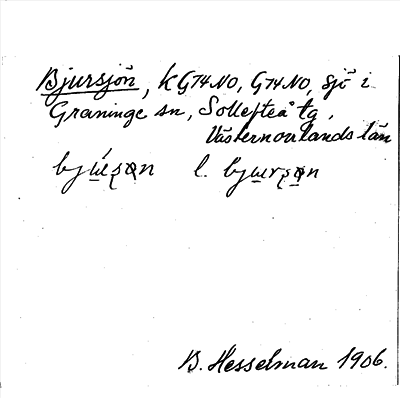 Bjursjön, k G74NO, G74NO, sjö i
Graninge sn, Sollefteå tg,
Västernorrlands län
l.
B. Hesselman 1906.